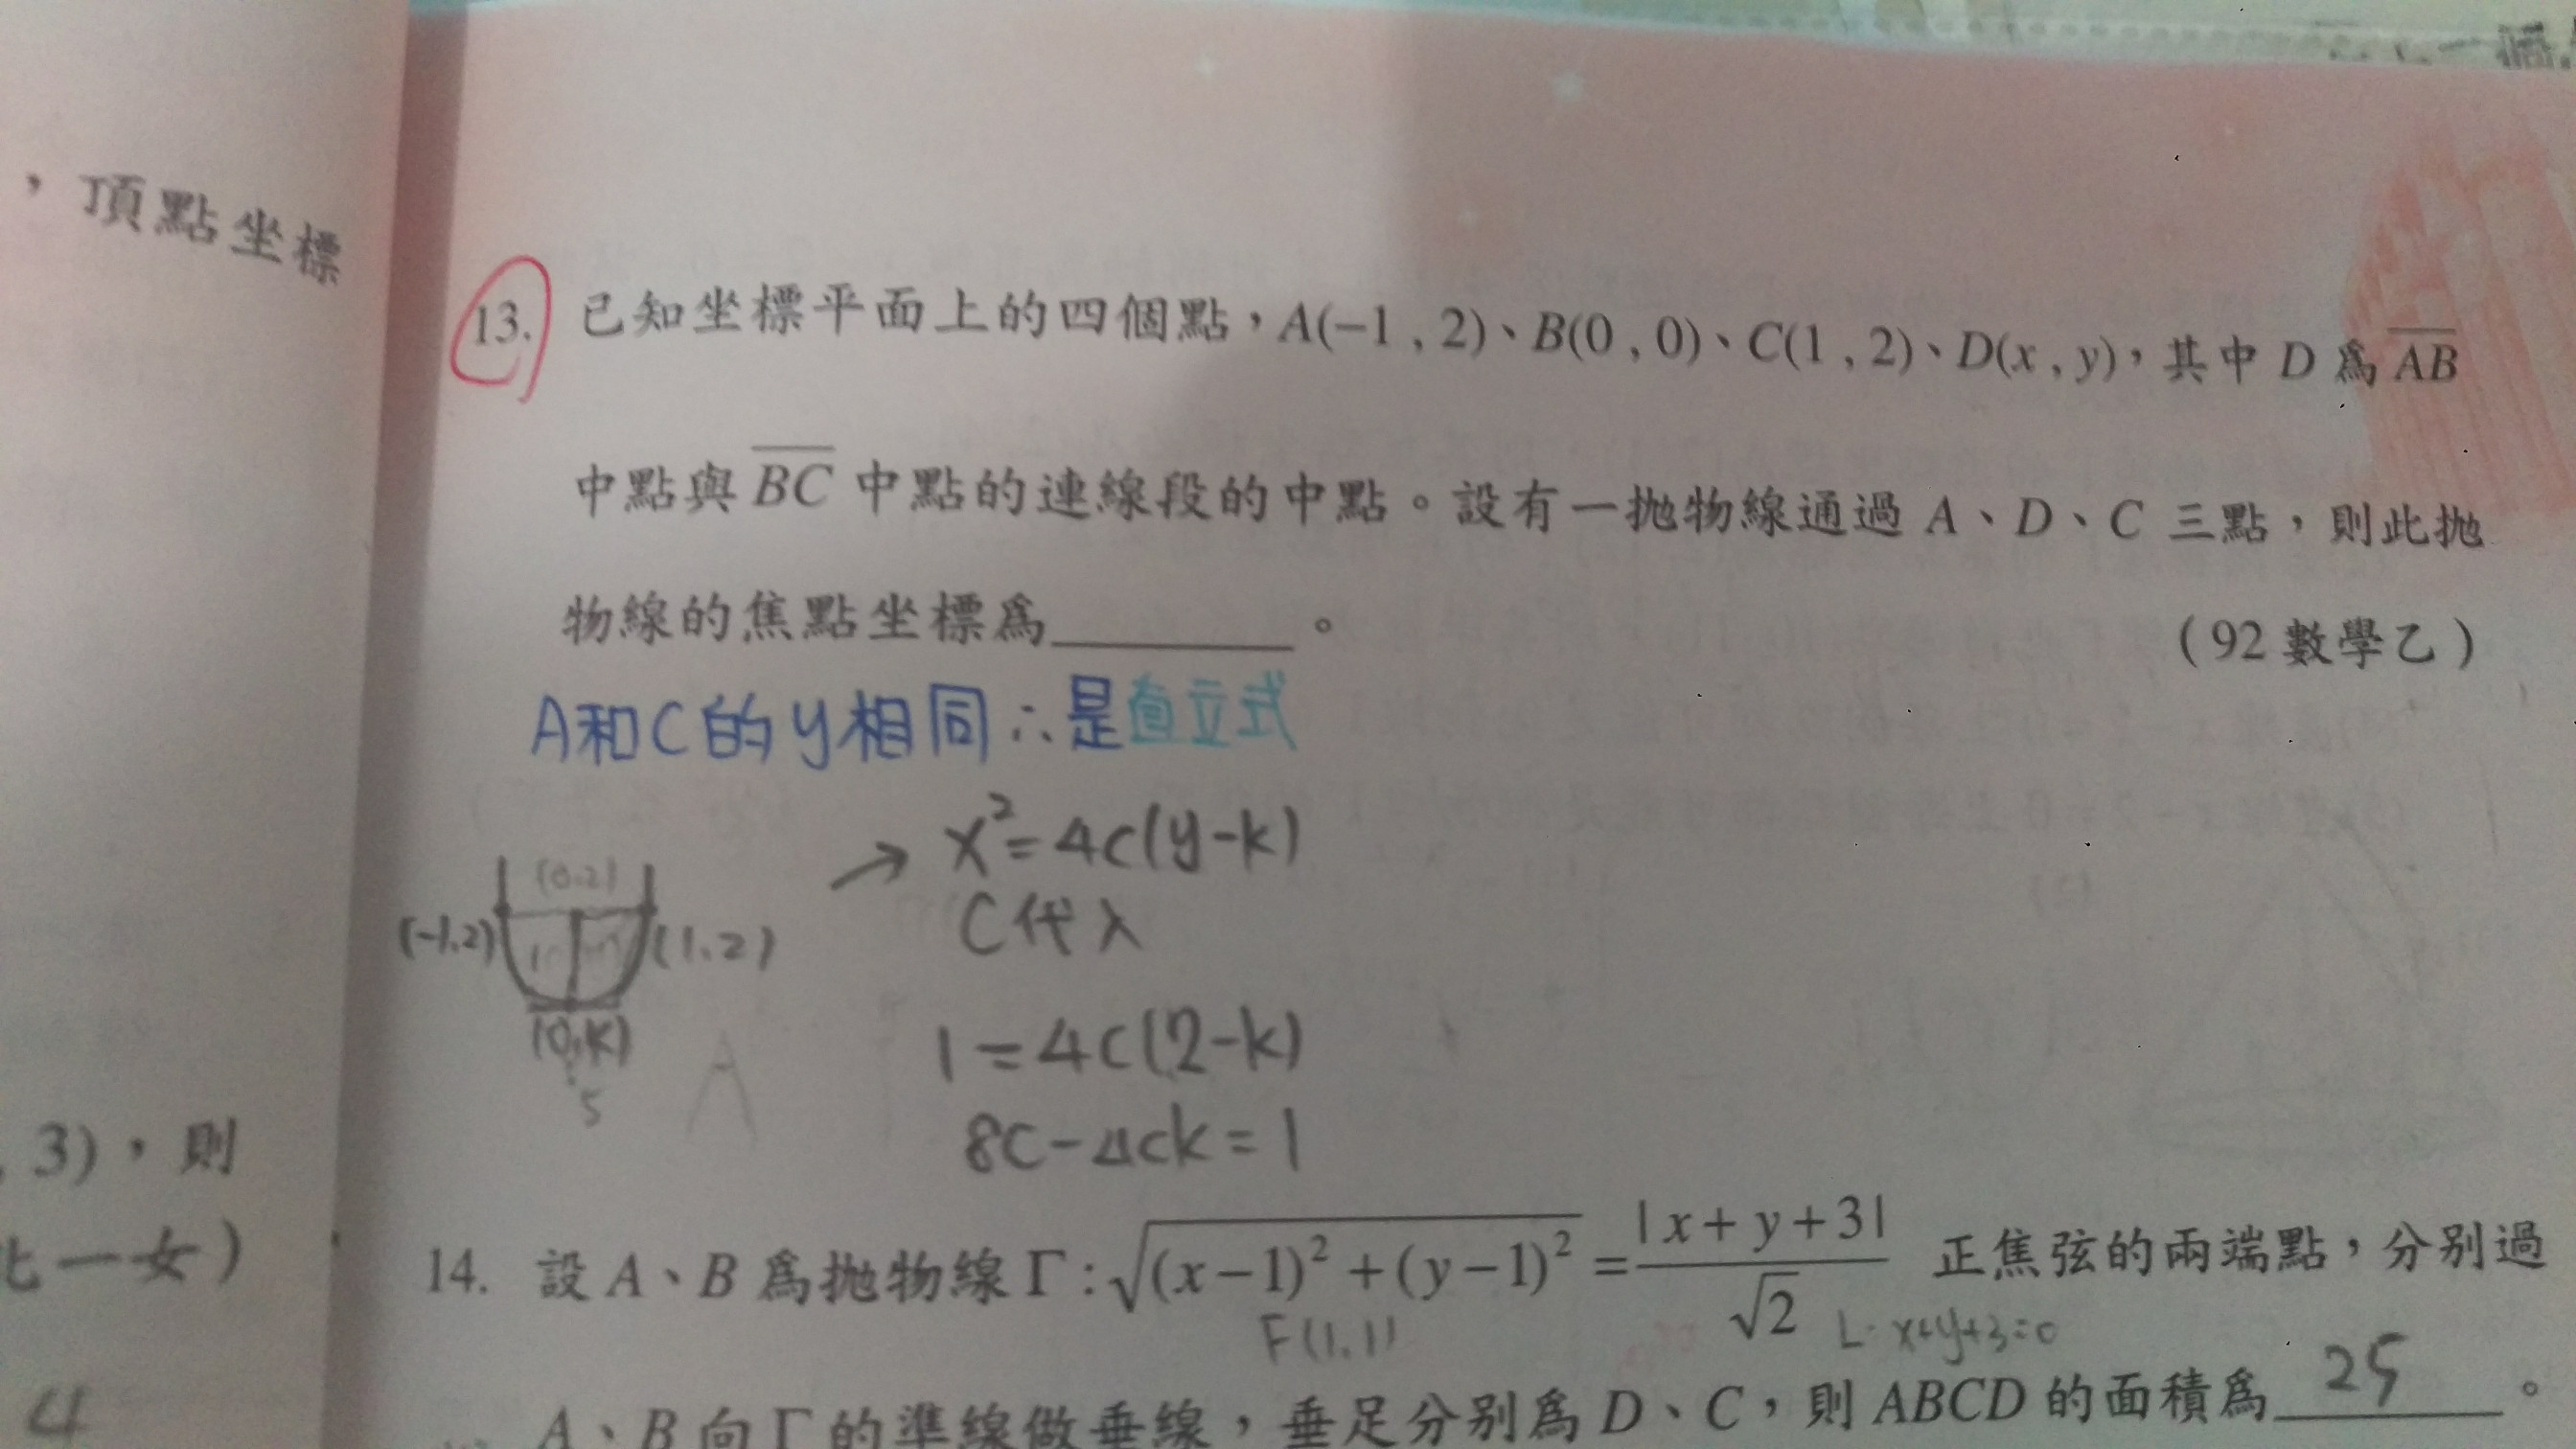 ，頂點坐標
13. 已知坐標平面上的四個點，A(−1 , 2)、B(0 , 0)、C(1 , 2)、D(x , y)，其中 D 為 AB
中點與 BC 中點的連線段的中點。設有一拋物線通過 A、D、C 三點，則此拋
物線的焦點坐標為________。
(92 數學乙)
A和C的y相同∴是直立式
→ x²=4c(y-k)
C代入
(0.2)
(-1.2)
(1.2)
(0,k)
5
A
1=4c(2-k)
8c-4ck=1
, 3)，則
一女)
4
14. 設 A、B 為拋物線 Γ : √(x−1)² + (y−1)² = |x + y + 3| / √2 正焦弦的兩端點，分別過
F(1.1)
L: x+y+3=0
A、B 向 Γ 的準線做垂線，垂足分別為 D、C，則 ABCD 的面積為 25 。